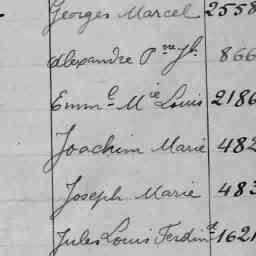 Georges Marcel 2558
Alexandre Pre Jh 866
Emmel Mce Louis 2186
Joachim Marie 482
Joseph Marie 483
Jules Louis Ferdind 1621